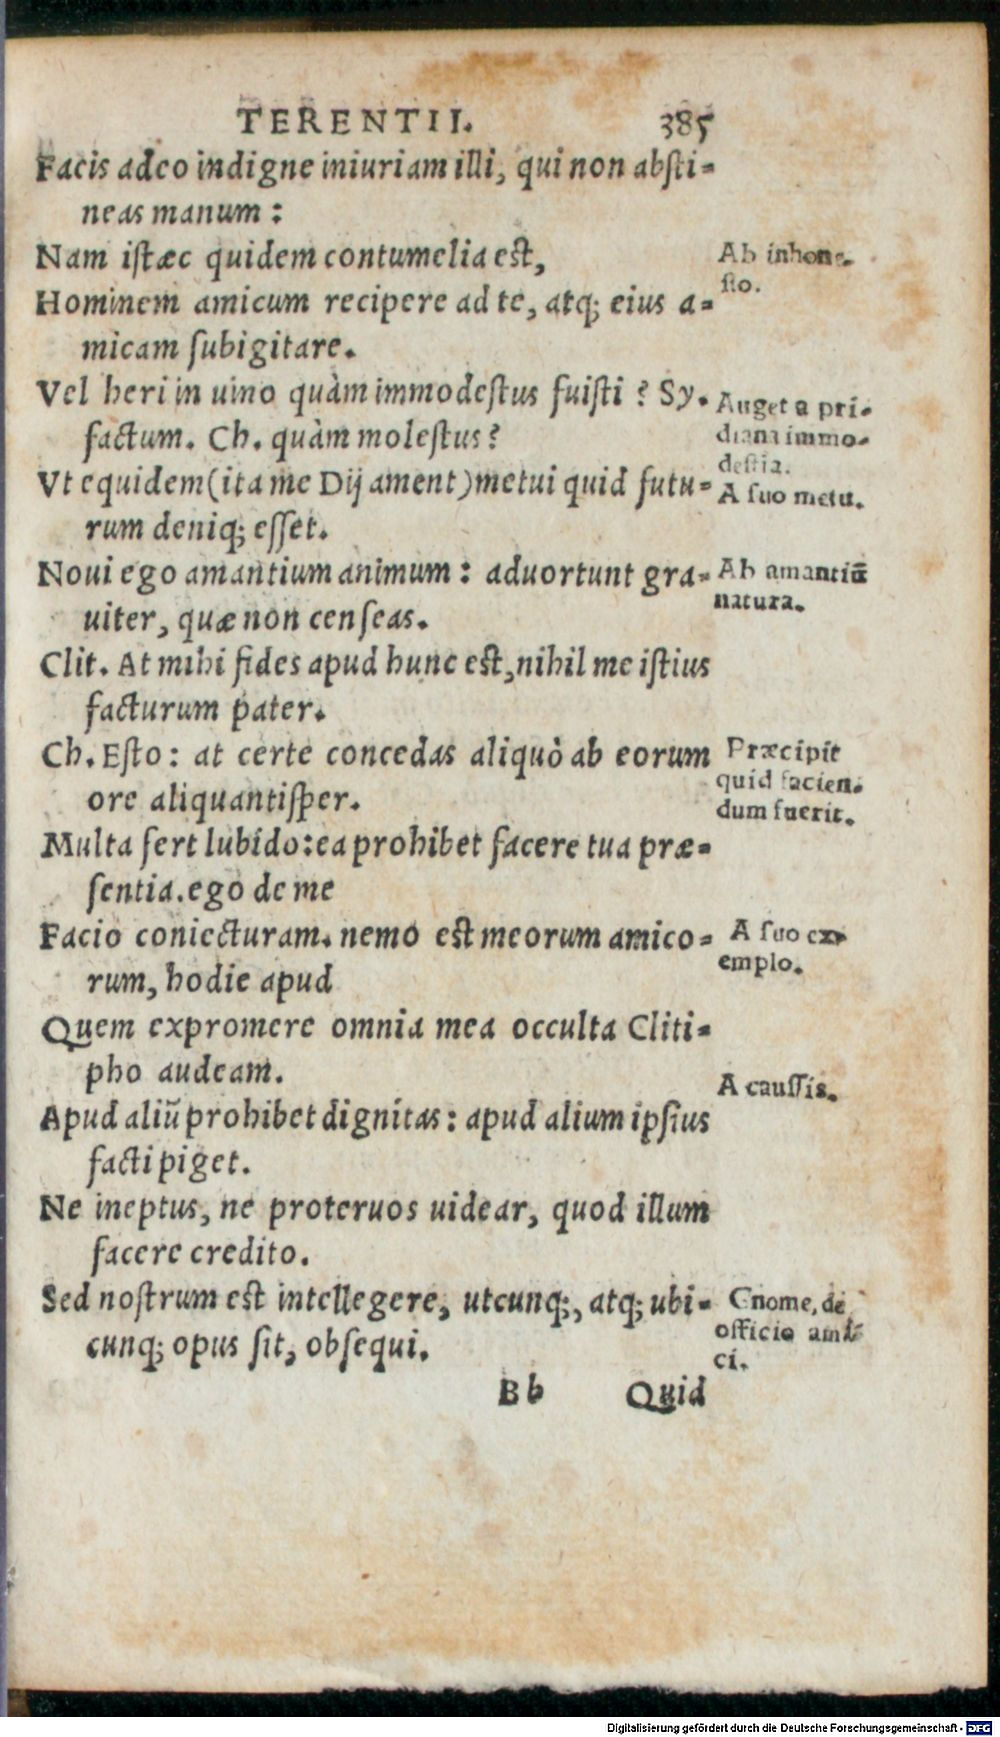 TERENTII. 385
Facis adeo indigne iniuriam illi, qui non absti-
neas manum:
Nam istæc quidem contumelia est,
Ab inhone-
sto.
Hominem amicum recipere ad te, atq; eius a-
micam subigitare.
Vel heri in uino quàm immodestus fuisti? Sy.
factum. Ch. quàm molestus?
Auget a pri-
diana immo-
destia.
Vt equidem (ita me Dij ament) metui quid futu-
rum deniq; esset.
A suo metu.
Noui ego amantium animum: aduortunt gra-
uiter, quæ non censeas.
Ab amantiū
natura.
Clit. At mihi fides apud hunc est, nihil me istius
facturum pater.
Ch. Esto: at certe concedas aliquò ab eorum
ore aliquantisper.
Præcipit
quid facien-
dum fuerit.
Multa fert lubido: ea prohibet facere tua præ-
sentia. ego de me
Facio coniecturam. nemo est meorum amico-
rum, hodie apud
A suo ex-
emplo.
Quem expromere omnia mea occulta Cliti-
pho audeam.
A caussis.
Apud aliū prohibet dignitas: apud alium ipsius
facti piget.
Ne ineptus, ne proteruos uidear, quod illum
facere credito.
Sed nostrum est intellegere, utcunq;, atq; ubi-
cunq; opus sit, obsequi.
Gnome, de
officio ami-
ci.
Bb Quid
Digitalisierung gefördert durch die Deutsche Forschungsgemeinschaft - DFG